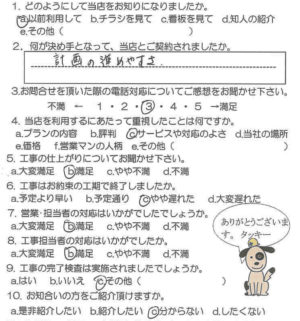 1. どのようにして当店をお知りになりましたか。
a.以前利用して b.チラシを見て c.看板を見て d.知人の紹介
e.その他( )
2. 何が決め手となって、当店とご契約されましたか。
計画の進めやすさ
3.お問合せを頂いた際の電話対応についてご感想をお聞かせ下さい。
不満 ← 1・2・3・4・5 →満足
4. 当店を利用するにあたって重視したことは何ですか。
a.プランの内容 b.評判 cサービスや対応のよさ d.当社の場所
e.価格 f.営業マンの人柄 e.その他( )
5. 工事の仕上がりについてお聞かせ下さい。
a.大変満足 b満足 c.やや不満 d.不満
6. 工事はお約束の工期で終了しましたか。
a.予定より早い b.予定通り cやや遅れた d.大変遅れた
7. 営業・担当者の対応はいかがでしたでしょうか。
a.大変満足 b満足 c.やや不満 d.不満
8. 工事担当者の対応はいかがでしたか。
a.大変満足 b満足 c.やや不満 d.不満
9. 工事の完了検査は実施されましたでしょうか。
a.はい b.いいえ cその他( )
10. お知合いの方をご紹介頂けますか。
a.是非紹介したい b.紹介したい c分からない d.したくない
ありがとうございま
す。タッキー